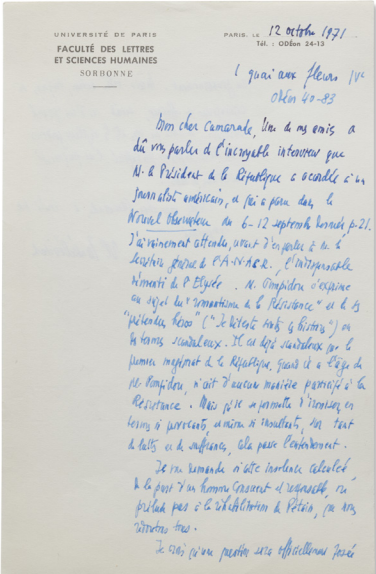 UNIVERSITÉ DE PARIS
FACULTÉ DES LETTRES
ET SCIENCES HUMAINES
SORBONNE
PARIS, LE 12 octobre 1971
Tél. : ODÉon 24-13
1 quai aux fleurs IVe
Odéon 40-83
Mon cher Camarade, Une de mes amis a
dû vous parler de l'incroyable interview que
M. le Président de la République a accordé à un
journaliste américain, et qui a paru dans le
Nouvel Observateur du 6-12 septembre dernier p. 21.
J'ai vainement attendu, avant d'en parler à M. le
Secrétaire général de l'A.N.A.C.R., l'indispensable
démenti de l'Elysée. M. Pompidou s'exprime
au sujet du "romantisme de la Résistance" et de ses
"prétendus héros" ("Je déteste toutes ces histoires") en
des termes scandaleux. Il est déjà scandaleux que le
premier magistrat de la République, quand il a l'âge de
M. Pompidou, n'ait d'aucune manière participé à la
Résistance. Mais qu'il se permette d'ironiser, en
termes si provocants, et même si insultants, sur tant
de luttes et de souffrances, cela passe l'entendement.
Je me demande si cette insolence calculée,
de la part d'un homme conscient et responsable, ne
prélude pas à la réhabilitation de Pétain, que nous
redoutons tous.
Je crois qu'une question sera officiellement posée